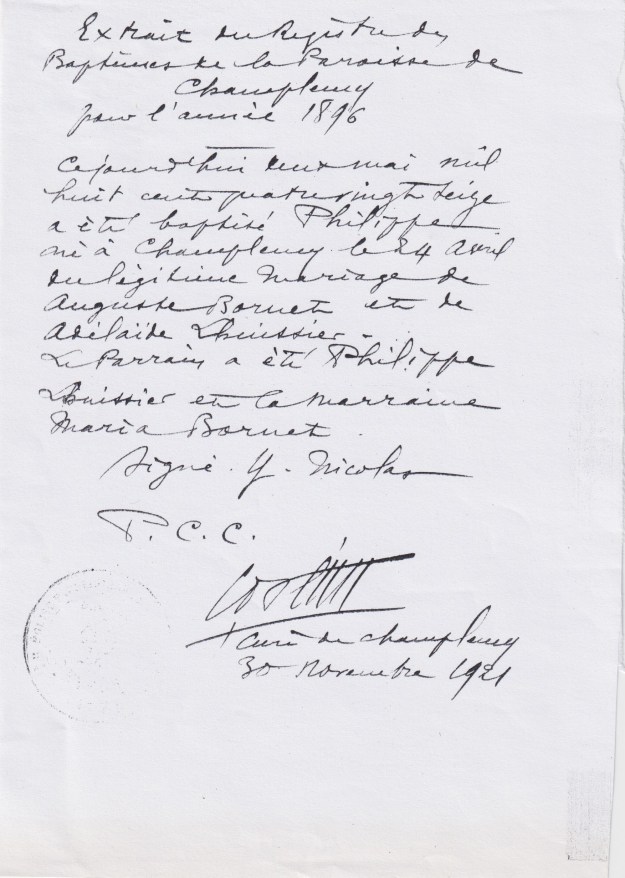 Extrait du Registre des
Baptêmes de la Paroisse de
Champlemy
pour l'année 1896
Cejourd'hui deux mai mil
huit cent quatre vingt seize
a été baptisé Philippe
né à Champlemy le 24 Avril
du légitime Mariage de
Auguste Bornet et de
Adélaïde Lhuissier.
Le Parrain a été Philippe
Lhuissier et la Marraine
Maria Bornet.
Signé. Y. Nicolas
P.C.C.
curé de Champlemy
30 Novembre 1921